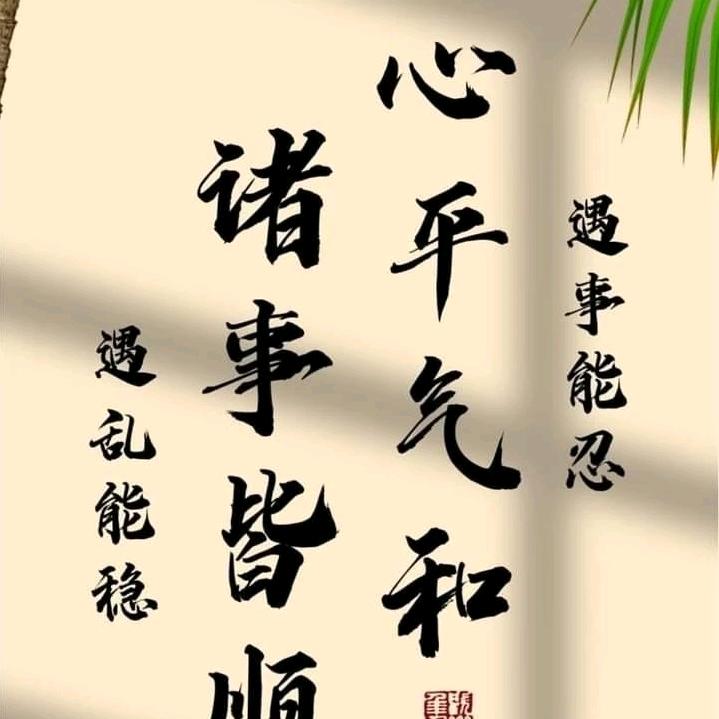 遇事能忍
心平气和
诸事皆顺
遇乱能稳